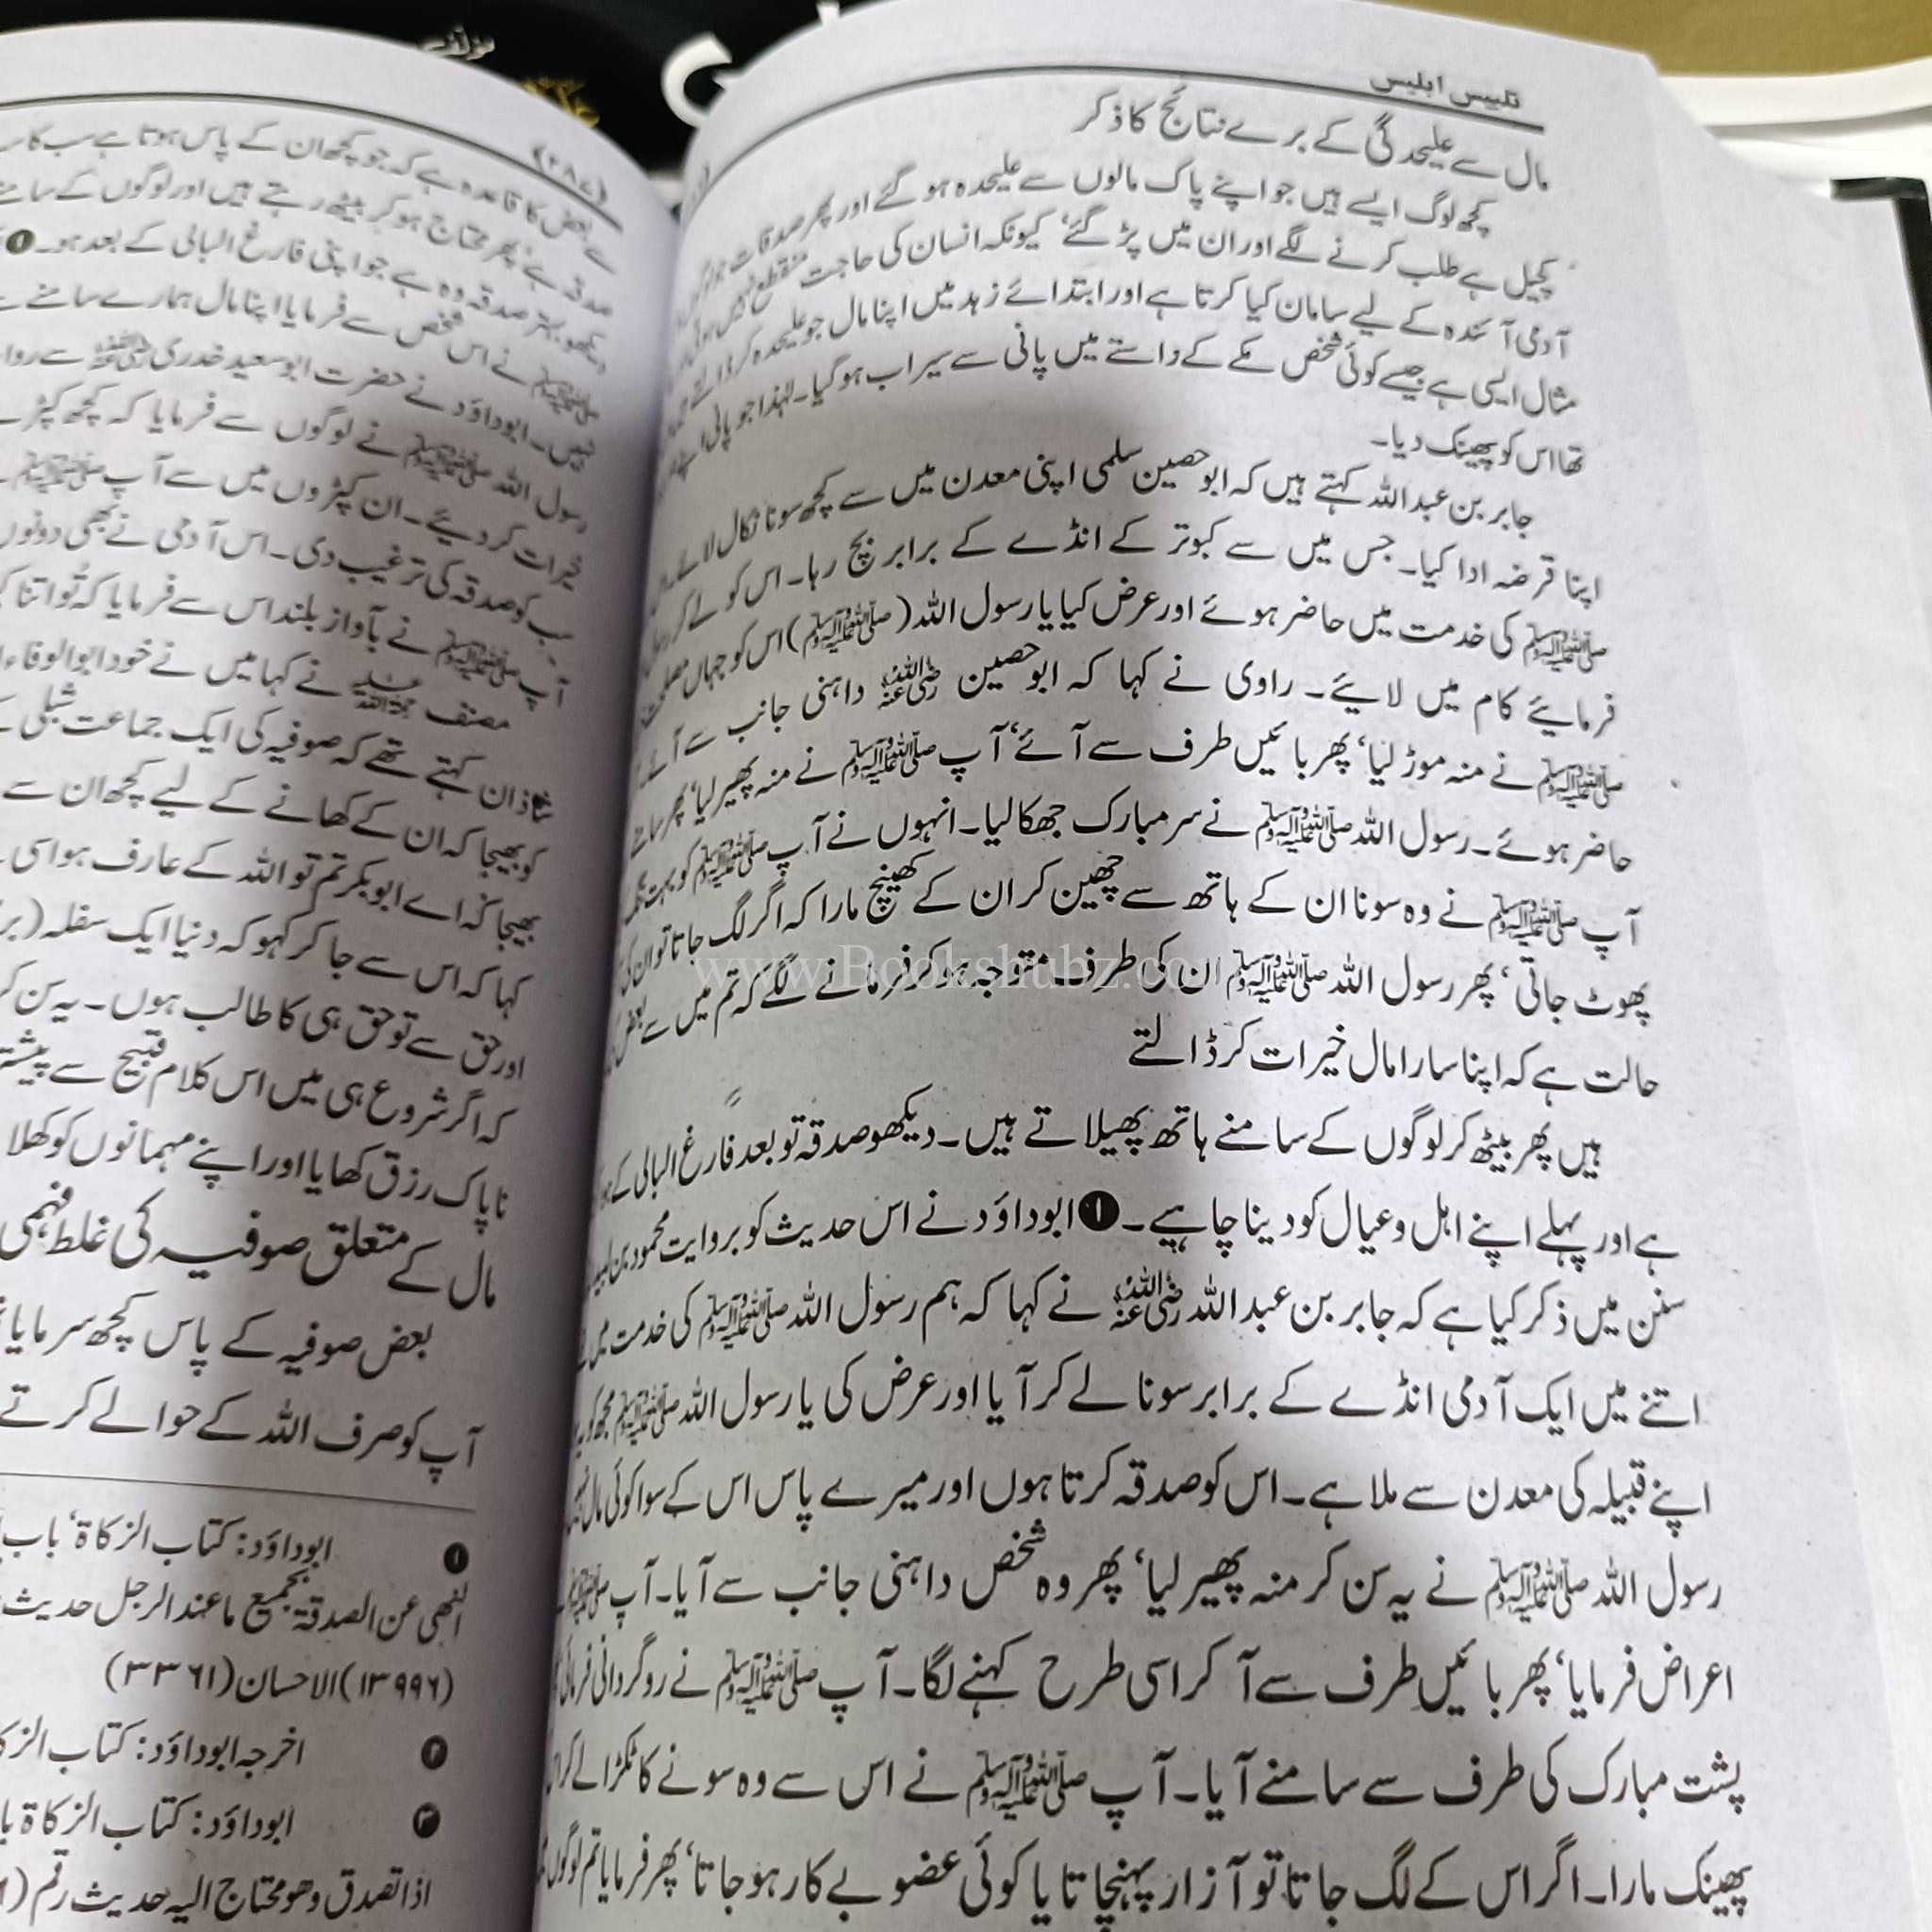 تلبیس ابلیس
مال سے علیحدگی کے برے نتائج کا ذکر
کچھ لوگ ایسے ہیں جو اپنے پاک مالوں سے علیحدہ ہو گئے اور پھر صدقات جو لوگوں
کچیل ہے طلب کرنے لگے اور ان میں پڑ گئے، کیونکہ انسان کی حاجت منقطع نہیں ہوتی
آدمی آئندہ کے لیے سامان کیا کرتا ہے اور ابتدائے زہد میں اپنا مال جو علیحدہ کر ڈالتے ہیں
مثال ایسی ہے جیسے کوئی شخص مکے کے راستے میں پانی سے سیراب ہو گیا۔ لہٰذا جو پانی
تھا اس کو پھینک دیا۔
جابر بن عبد اللہ کہتے ہیں کہ ابو حصین سلمی اپنی معدن میں سے کچھ سونا نکال لائے۔
اپنا قرضہ ادا کیا۔ جس میں سے کبوتر کے انڈے کے برابر بچ رہا۔ اس کو لے کر رسول
ﷺ کی خدمت میں حاضر ہوئے اور عرض کیا یا رسول اللہ (ﷺ) اس کو جہاں مصلحت
فرمایئے کام میں لایئے۔ راوی نے کہا کہ ابو حصین رضی اللہ عنہ داہنی جانب سے آئے۔
ﷺ نے منہ موڑ لیا، پھر بائیں طرف سے آئے، آپ ﷺ نے منہ پھیر لیا، پھر سامنے
حاضر ہوئے۔ رسول اللہ ﷺ نے سر مبارک جھکا لیا۔ انہوں نے آپ ﷺ کو بہت تنگ
آپ ﷺ نے وہ سونا ان کے ہاتھ سے چھین کر ان کے کھینچ مارا کہ اگر لگ جاتا تو ان کی
پھوٹ جاتی، پھر رسول اللہ ﷺ ان کی طرف متوجہ ہو کر فرمانے لگے کہ تم میں سے بعض
حالت ہے کہ اپنا سارا مال خیرات کر ڈالتے
ہیں پھر بیٹھ کر لوگوں کے سامنے ہاتھ پھیلاتے ہیں۔ دیکھو صدقہ تو بعد فارغ البالی کے
ہے اور پہلے اپنے اہل و عیال کو دینا چاہیے۔ ❶ ابوداؤد نے اس حدیث کو بروایت محمود بن لبید
سنن میں ذکر کیا ہے کہ جابر بن عبد اللہ رضی اللہ عنہ نے کہا کہ ہم رسول اللہ ﷺ کی خدمت میں
اتنے میں ایک آدمی انڈے کے برابر سونا لے کر آیا اور عرض کی یا رسول اللہ ﷺ مجھ کو یہ
اپنے قبیلہ کی معدن سے ملا ہے۔ اس کو صدقہ کرتا ہوں اور میرے پاس اس کے سوا کوئی مال
رسول اللہ ﷺ نے یہ سن کر منہ پھیر لیا، پھر وہ شخص داہنی جانب سے آیا۔ آپ ﷺ
اعراض فرمایا، پھر بائیں طرف سے آ کر اسی طرح کہنے لگا۔ آپ ﷺ نے روگردانی فرمائی
پشت مبارک کی طرف سے سامنے آیا۔ آپ ﷺ نے اس سے وہ سونے کا ٹکڑا لے کر
پھینک مارا۔ اگر اس کے لگ جاتا تو آزار پہنچاتا یا کوئی عضو بے کار ہو جاتا، پھر فرمایا تم لوگوں
﴿۲۸۷﴾
سے بعض کا قاعدہ ہے کہ جو کچھ ان کے پاس ہوتا ہے سب کا سب
صدقہ ہے، پھر محتاج ہو کر بیٹھ رہتے ہیں اور لوگوں کے سامنے
دیکھو بہتر صدقہ وہ ہے جو اپنی فارغ البالی کے بعد ہو۔ ❶
ﷺ نے اس شخص سے فرمایا اپنا مال ہمارے سامنے سے
نہیں۔ ابوداؤد نے حضرت ابو سعید خدری رضی اللہ عنہ سے
رسول اللہ ﷺ نے لوگوں سے فرمایا کہ کچھ کپڑے
خیرات کر دیئے۔ ان کپڑوں میں سے آپ ﷺ
سب کو صدقہ کی ترغیب دی۔ اس آدمی نے بھی دونوں
آپ ﷺ نے بآواز بلند اس سے فرمایا کہ تو اتنا
مصنف رحمہ اللہ نے کہا میں نے خود ابو الوفاء
شاذان کہتے تھے کہ صوفیہ کی ایک جماعت شبلی
کو بھیجا کہ ان کے کھانے کے لیے کچھ ان سے
بھیجا کہ اے ابوبکر تم تو اللہ کے عارف ہو اسی
کہا کہ اس سے جا کر کہو کہ دنیا ایک سفلہ
اور حق سے تو حق ہی کا طالب ہوں۔ یہ سن کر
کہ اگر شروع ہی میں اس کلام قبیح سے پیشتر
ناپاک رزق کھایا اور اپنے مہمانوں کو کھلا
مال کے متعلق صوفیہ کی غلط فہمی
بعض صوفیہ کے پاس کچھ سرمایا
آپ کو صرف اللہ کے حوالے کرتے
❶ ابوداؤد: کتاب الزکاۃ، باب
النھی عن الصدقۃ بجمیع ما عند الرجل حدیث
(۱۳۹۹۶) الاحسان (۳۳۶۱)
❷ اخرجہ ابوداؤد: کتاب
❸ ابوداؤد: کتاب الزکاۃ
اذا تصدق وھو محتاج الیہ حدیث رقم
www.Bookshubz.co